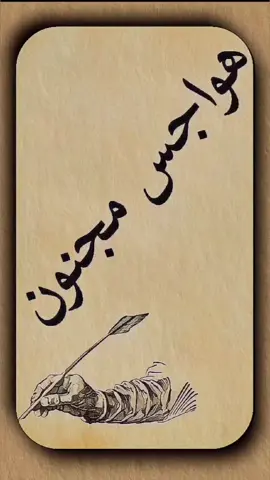 هواجس مجنون